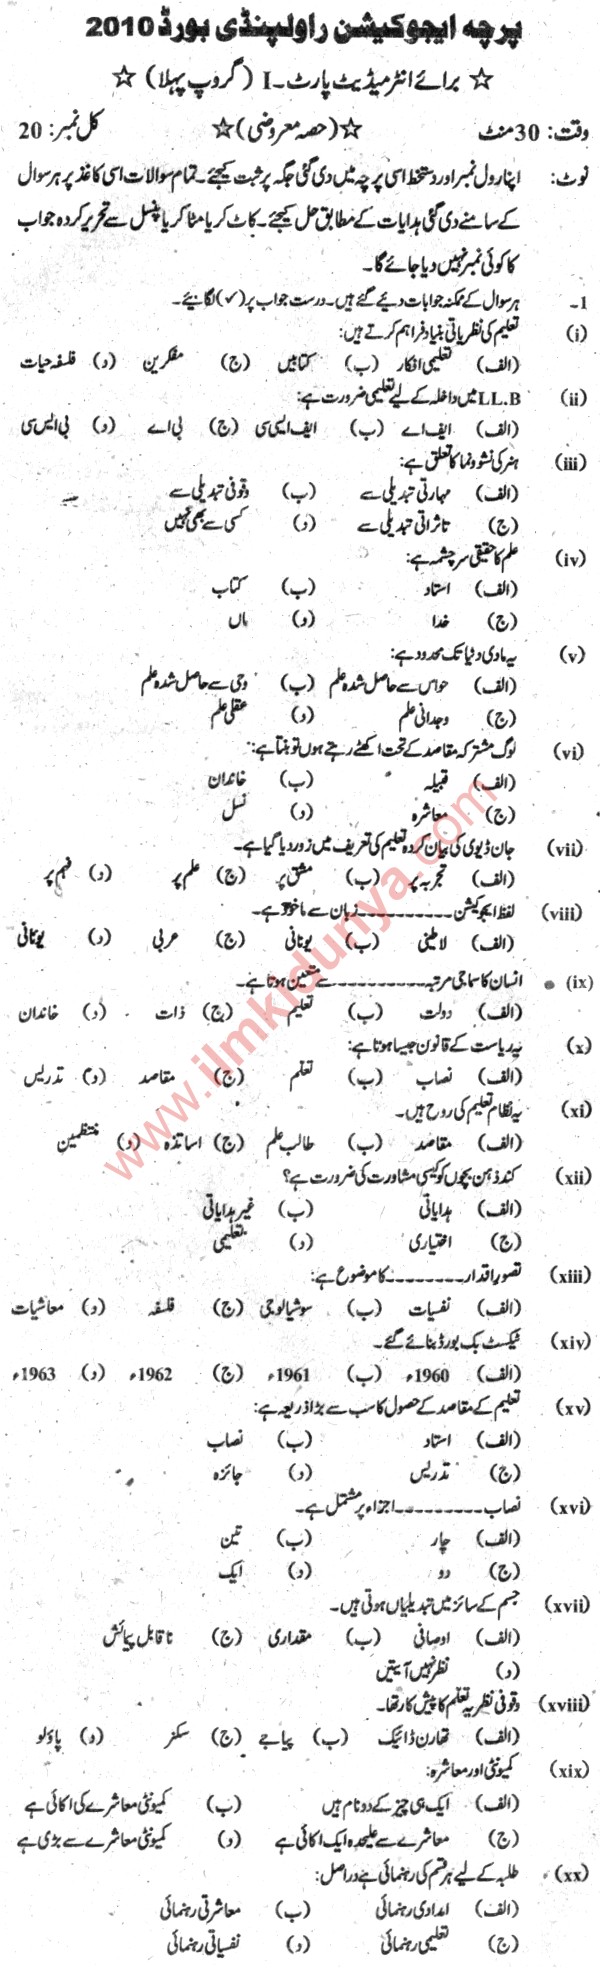 پرچہ ایجوکیشن راولپنڈی بورڈ 2010
☆ برائے انٹرمیڈیٹ پارٹ۔ I (گروپ پہلا) ☆
وقت: 30 منٹ ☆(حصہ معروضی)☆ کل نمبر: 20
نوٹ: اپنا رول نمبر اور دستخط اسی پرچہ میں دی گئی جگہ پر ثبت کیجئے۔ تمام سوالات اسی کاغذ پر ہر سوال
کے سامنے دی گئی ہدایات کے مطابق حل کیجئے۔ کاٹ کر یا مٹا کر یا پنسل سے تحریر کردہ جواب
کا کوئی نمبر نہیں دیا جائے گا۔
1۔ ہر سوال کے ممکنہ جوابات دیئے گئے ہیں۔ درست جواب پر (✓) لگائیے۔
(i) تعلیم کی نظریاتی بنیاد فراہم کرتے ہیں:
(الف) تعلیمی افکار (ب) کتابیں (ج) مفکرین (د) فلسفہ حیات
(ii) LL.B میں داخلہ کے لیے تعلیمی ضرورت ہے:
(الف) ایف اے (ب) ایف ایس سی (ج) بی اے (د) بی ایس سی
(iii) ہنر کی نشوونما کا تعلق ہے:
(الف) مہارتی تبدیلی سے (ب) وقوفی تبدیلی سے
(ج) تاثراتی تبدیلی سے (د) کسی سے بھی نہیں
(iv) علم کا حقیقی سرچشمہ ہے:
(الف) استاد (ب) کتاب
(ج) خدا (د) ماں
(v) یہ مادی دنیا تک محدود ہے:
(الف) حواس سے حاصل شدہ علم (ب) وحی سے حاصل شدہ علم
(ج) وجدانی علم (د) عقلی علم
(vi) لوگ مشترکہ مقاصد کے تحت اکٹھے رہتے ہوں تو بنتا ہے:
(الف) قبیلہ (ب) خاندان
(ج) معاشرہ (د) نسل
(vii) جان ڈیوی کی بیان کردہ تعلیم کی تعریف میں زور دیا گیا ہے۔
(الف) تجربہ پر (ب) مشق پر (ج) علم پر (د) فہم پر
(viii) لفظ ایجوکیشن ---------- زبان سے ماخوذ ہے۔
(الف) لاطینی (ب) یونانی (ج) عربی (د) یونانی
(ix) انسان کا سماجی مرتبہ ---------- سے متعین ہوتا ہے۔
(الف) دولت (ب) تعلیم (ج) ذات (د) خاندان
(x) یہ ریاست کے قانون جیسا ہوتا ہے:
(الف) نصاب (ب) تعلم (ج) مقاصد (د) تدریس
(xi) یہ نظام تعلیم کی روح ہیں۔
(الف) مقاصد (ب) طالب علم (ج) اساتذہ (د) منتظمین
(xii) کند ذہن بچوں کو کیسی مشاورت کی ضرورت ہے؟
(الف) ہدایاتی (ب) غیر ہدایاتی
(ج) اختیاری (د) تعلیمی
(xiii) تصور اقدار --------- کا موضوع ہے:
(الف) نفسیات (ب) سوشیالوجی (ج) فلسفہ (د) معاشیات
(xiv) ٹیکسٹ بک بورڈ بنائے گئے۔
(الف) 1960ء (ب) 1961ء (ج) 1962ء (د) 1963ء
(xv) تعلیم کے مقاصد کے حصول کا سب سے بڑا ذریعہ ہے:
(الف) استاد (ب) نصاب
(ج) تدریس (د) جائزہ
(xvi) نصاب ---------- اجزاء پر مشتمل ہے۔
(الف) چار (ب) تین
(ج) دو (د) ایک
(xvii) جسم کے سائز میں تبدیلیاں ہوتی ہیں۔
(الف) اوصافی (ب) مقداری (ج) ناقابل پیمائش
(د) نظر نہیں آتیں
(xviii) وقوفی نظریہ تعلم کا پیش کار تھا۔
(الف) تھارن ڈائیک (ب) پیاجے (ج) سکنر (د) پاؤلو
(xix) کمیونٹی اور معاشرہ:
(الف) ایک ہی چیز کے دو نام ہیں (ب) کمیونٹی معاشرے کی اکائی ہے
(ج) معاشرے سے علیحدہ ایک اکائی ہے (د) کمیونٹی معاشرے سے بڑی ہے
(xx) طلبہ کے لیے ہر قسم کی رہنمائی ہے دراصل:
(الف) امدادی رہنمائی (ب) معاشرتی رہنمائی
(ج) تعلیمی رہنمائی (د) نفسیاتی رہنمائی
www.ilmkidunya.com